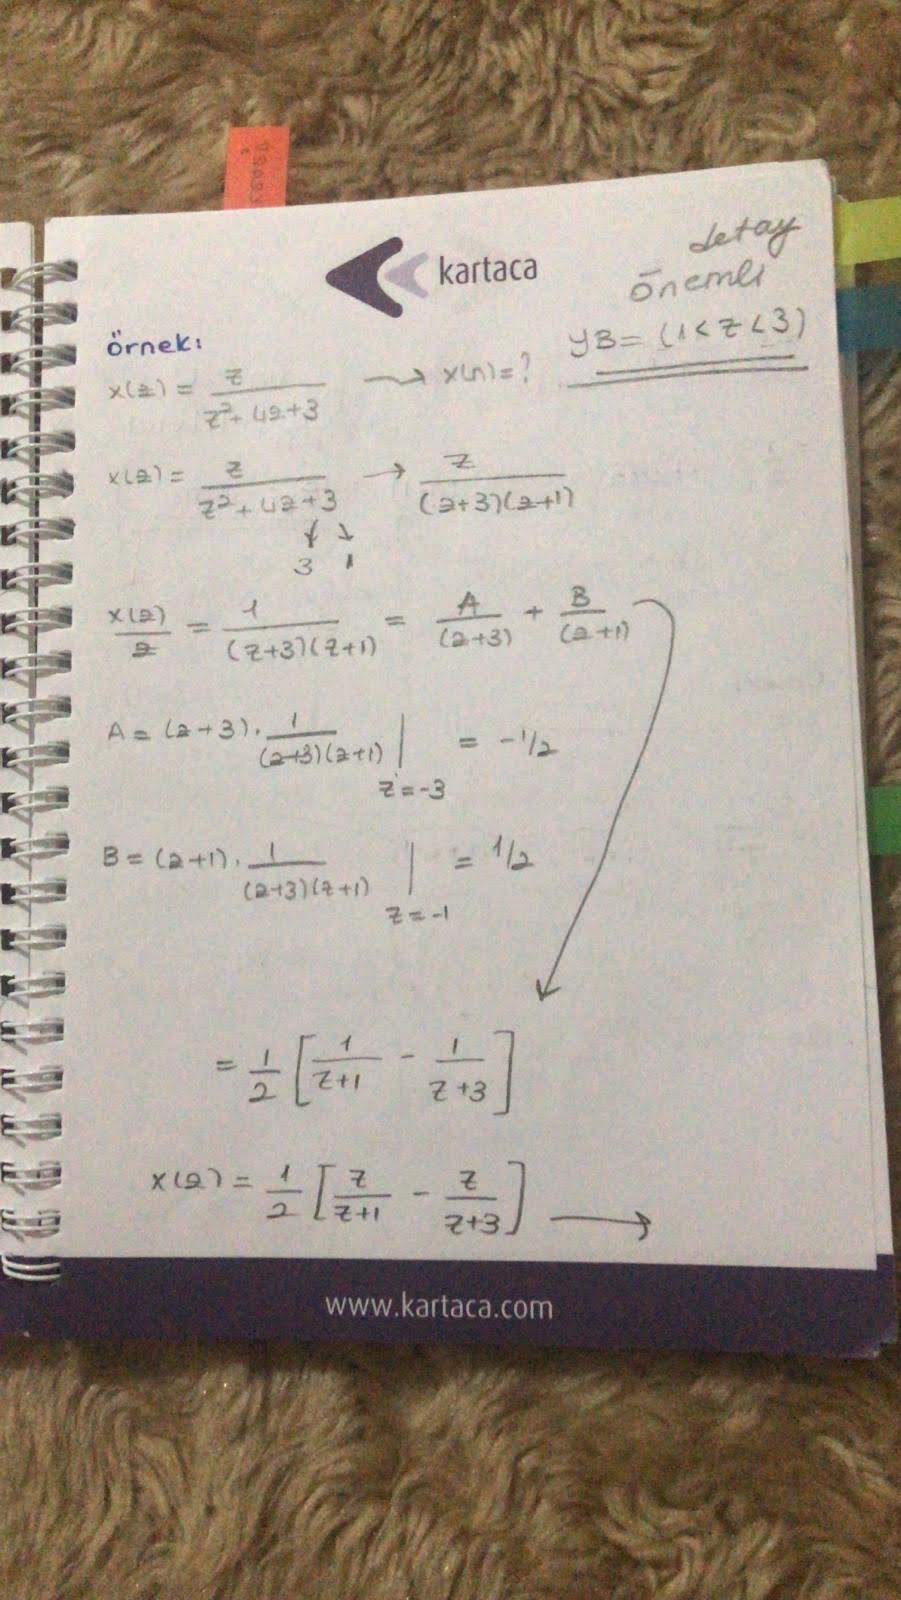 kartaca
detay
önemli
YB = (1 < z < 3)
örnek:
x(z) = z / (z² + 4z + 3) → x(n) = ?
x(z) = z / (z² + 4z + 3) → z / ((z+3)(z+1))
3 1
x(z)/z = 1 / ((z+3)(z+1)) = A/(z+3) + B/(z+1)
A = (z+3) . 1 / ((z+3)(z+1)) | z = -3 = -1/2
B = (z+1) . 1 / ((z+3)(z+1)) | z = -1 = 1/2
= 1/2 [ 1/(z+1) - 1/(z+3) ]
x(z) = 1/2 [ z/(z+1) - z/(z+3) ] →
www.kartaca.com